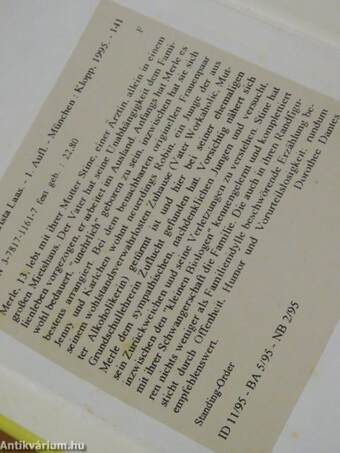 ista Laas. - 1. Aufl. - München : Klopp, 1995. - 141
3-7817-1161-7 fest geb. : 22.80
F
Merle, 13, lebt mit ihrer Mutter Stine, einer Ärztin, allein in einem
großen Mietshaus. Der Vater hat seine Unabhängigkeit dem Fami-
lienleben vorgezogen, er arbeitet im Ausland. Anfangs hat Merle es
wohl bedauert, unehelich geboren zu sein, inzwischen hat sie sich
bestens arrangiert. Bei dem benachbarten originellen Frauenpaar
Jenny und Karlchen wohnt neuerdings Robin, ein Junge der aus
seinem wohlstandsverwahrlosten Zuhause (Vater Workaholic, Mut-
ter Alkoholikerin) getürmt ist und hier bei seiner ehemaligen
Grundschullehrerin Zuflucht gefunden hat. Vorsichtig nähert sich
Merle dem sympathischen, nachdenklichen Jungen und versucht,
sein Zurückweichen und seine Verletzungen zu verstehen. Stine hat
inzwischen den "kleinen Biologen" kennengelernt und komplettiert
mit ihrer Schwangerschaft die Familie. Die auch in ihren Randfigu-
ren nichts weniger als Familienidylle beschwörende Erzählung be-
sticht durch Offenheit, Humor und Vorurteilslosigkeit, rundum
empfehlenswert.
Dorothee Dantes
Standing-Order
ID 11/95 - BA 5/95 - NB 2/95
Antikvárium.hu